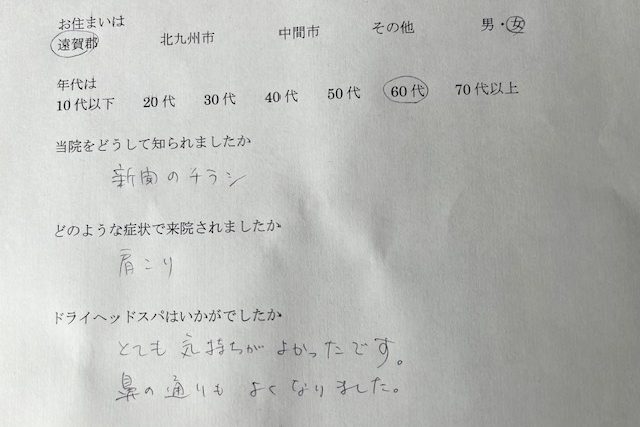 お住まいは
遠賀郡 北九州市 中間市 その他 男・女
年代は
10代以下 20代 30代 40代 50代 60代 70代以上
当院をどうして知られましたか
新聞のチラシ
どのような症状で来院されましたか
肩こり
ドライヘッドスパはいかがでしたか
とても気持ちがよかったです。
鼻の通りもよくなりました。